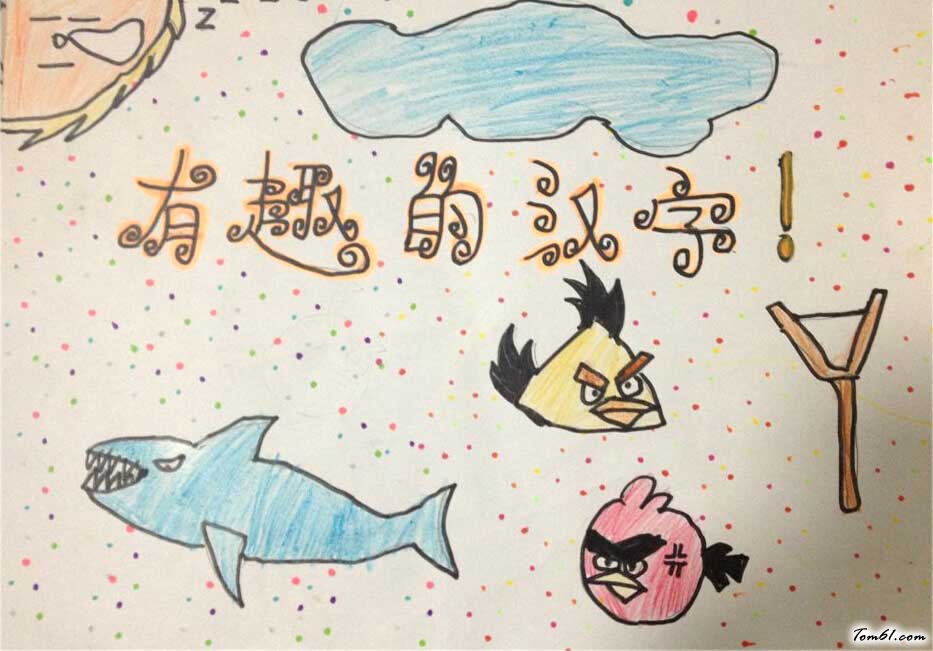 z
有趣的汉字!
Tom61.com